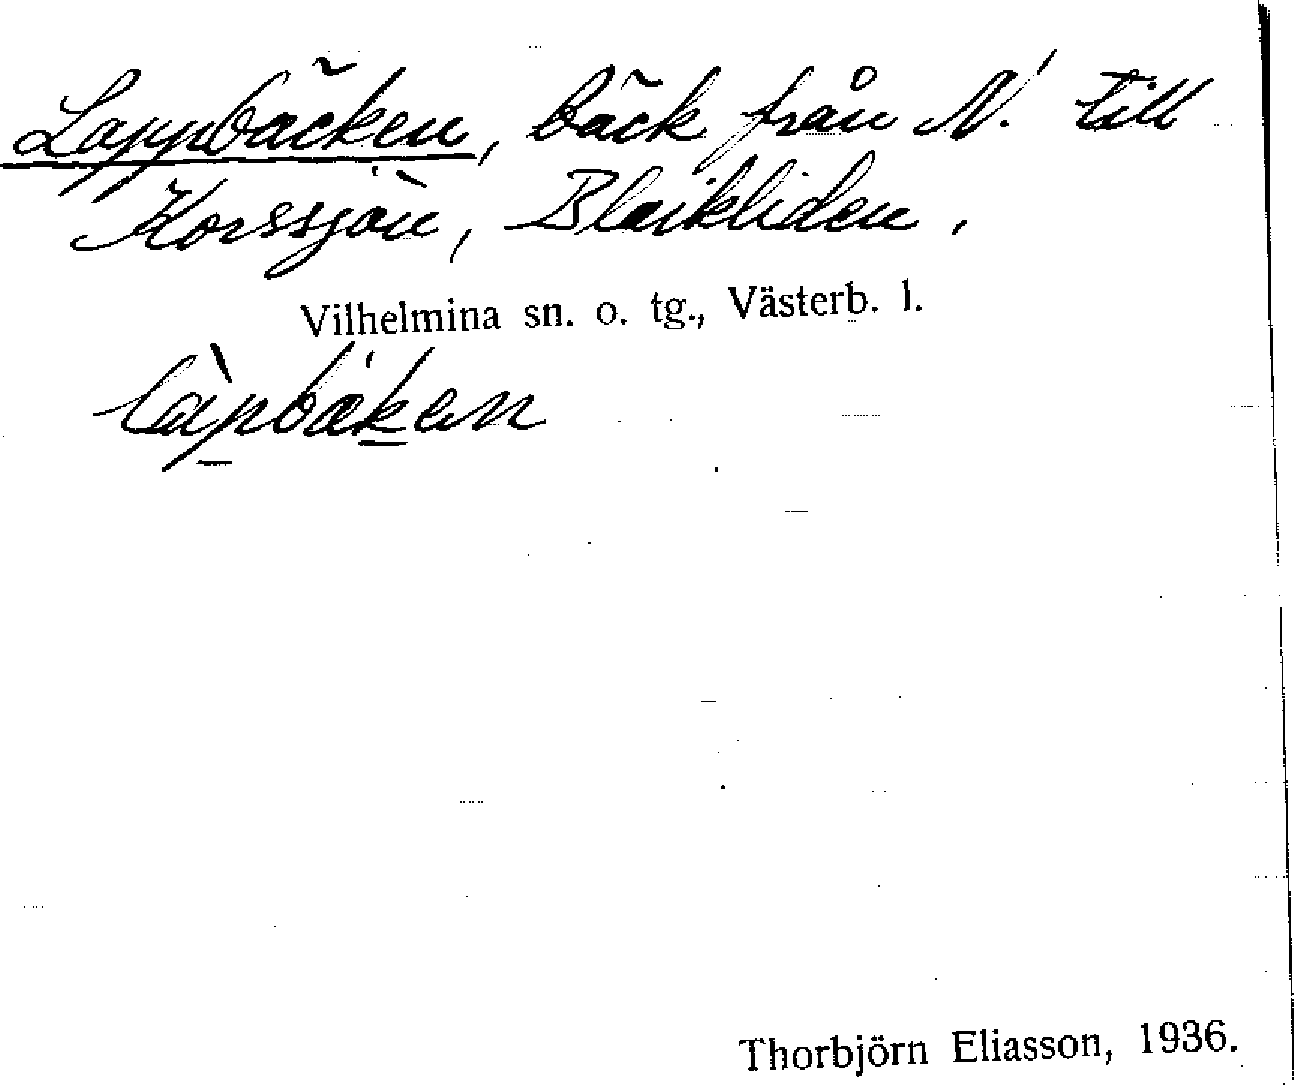 Lappbäcken, bäck från N. till
Korssjön, Blaikliden.
Vilhelmina sn. o. tg., Västerb. l.
Thorbjörn Eliasson, 1936.